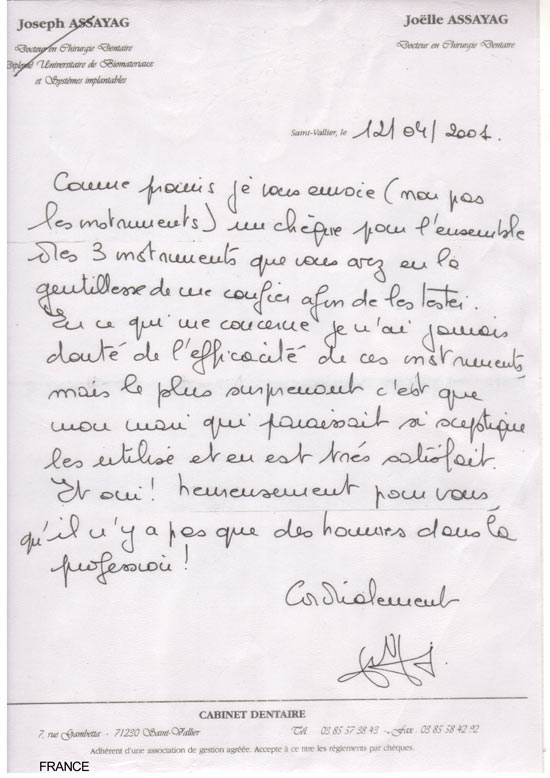 Joseph ASSAYAG
Docteur en Chirurgie Dentaire
Diplômé Universitaire de Biomateriaux
et Systèmes implantables
Joëlle ASSAYAG
Docteur en Chirurgie Dentaire
Saint-Vallier, le 12/04/2001.
Comme promis je vous envoie (non pas
les instruments) un chèque pour l'ensemble
des 3 instruments que vous avez eu la
gentillesse de me confier afin de les tester.
En ce qui me concerne je n'ai jamais
douté de l'efficacité de ces instruments
mais le plus surprenant c'est que
mon mari qui paraissait si sceptique
les utilise et en est très satisfait.
Et oui ! heureusement pour vous
qu'il n'y a pas que des hommes dans la
profession !
Cordialement
CABINET DENTAIRE
7, rue Gambetta - 71230 Saint-Vallier Tél. 03 85 57 38 43 - Fax 03 85 58 42 92
Adhérent d'une association de gestion agréée. Accepte à ce titre les règlements par chèques.
FRANCE